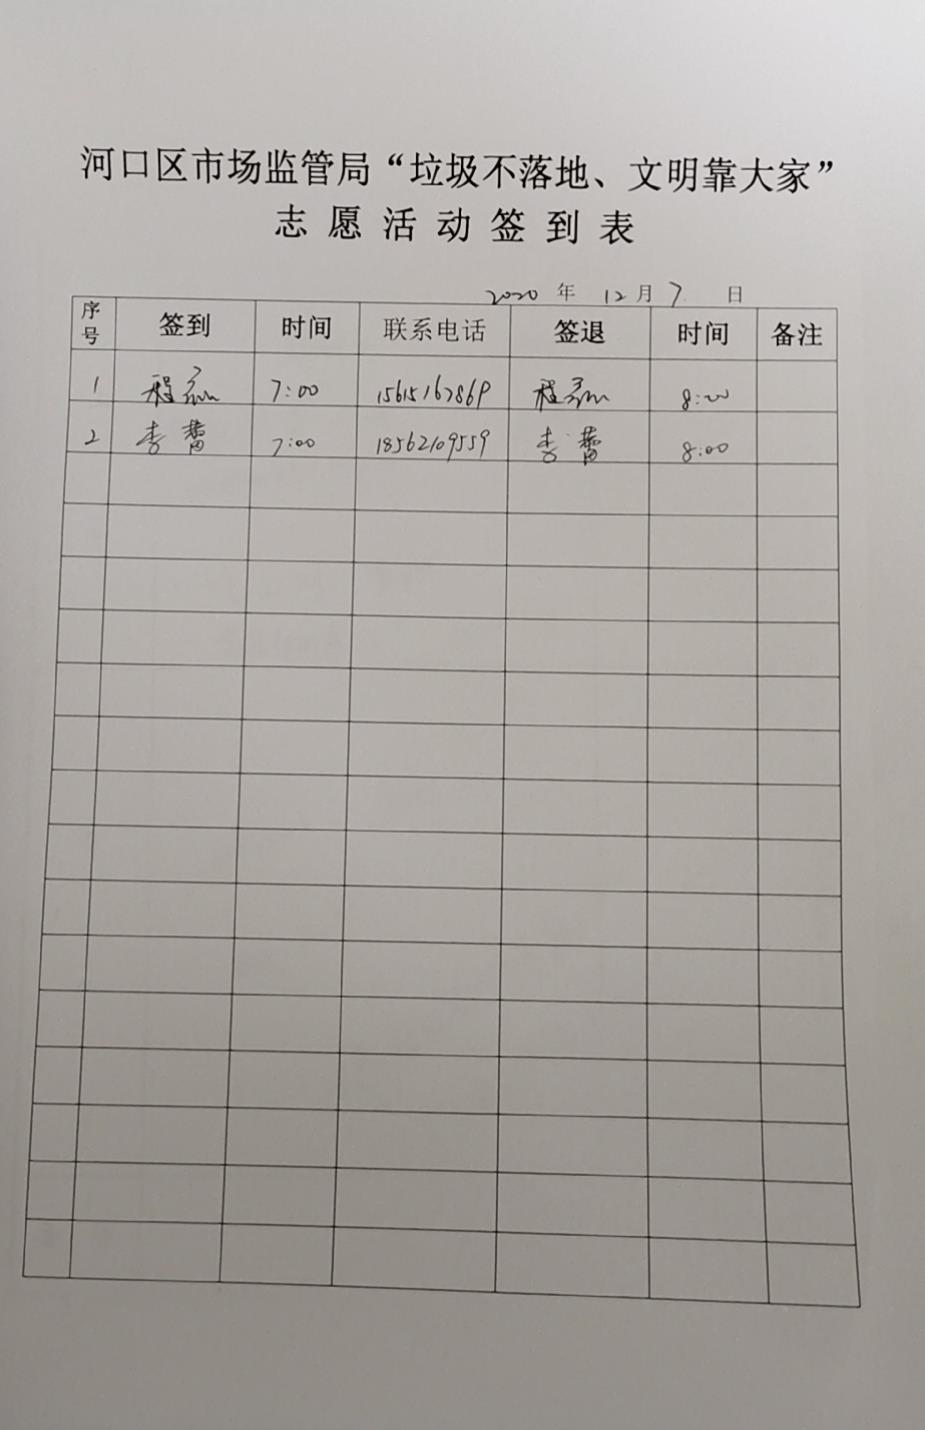 河口区市场监管局“垃圾不落地、文明靠大家”
志愿活动签到表
2020 年 12 月 7 日
序号 签到 时间 联系电话 签退 时间 备注
1 程 7:00 15615167869 程 8:00
2 李蕾 7:00 18562109559 李蕾 8:00